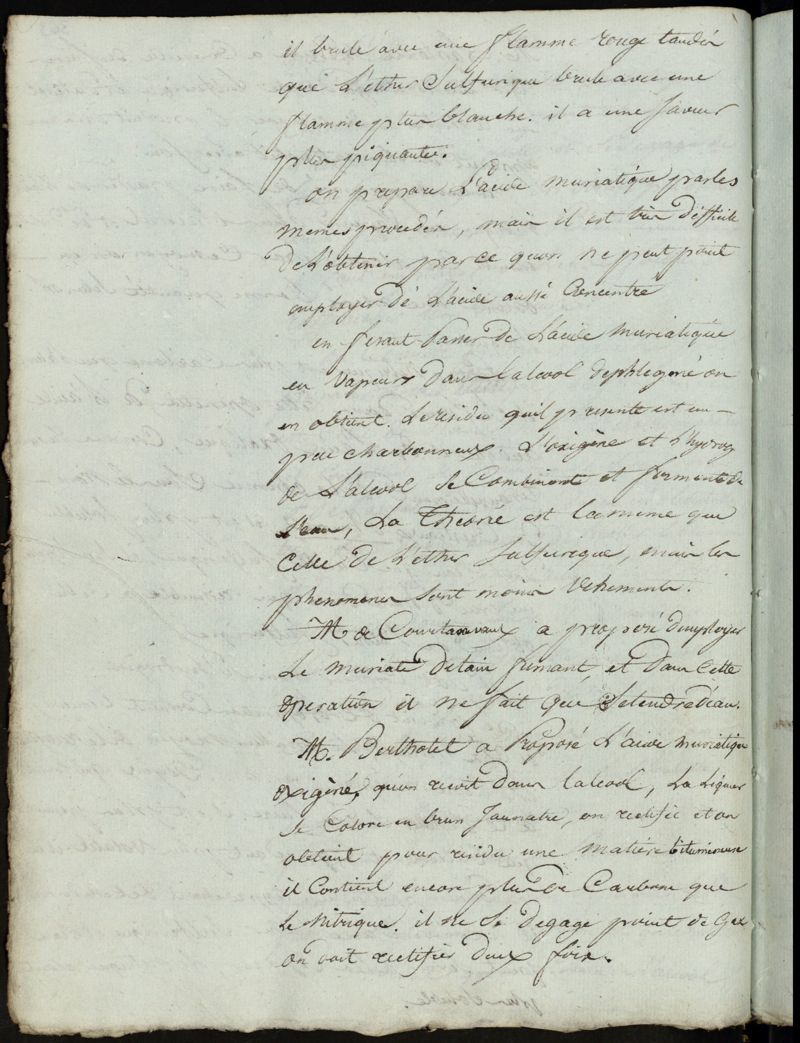 il brule avec une flamme rouge tandis
que L'ether Sulfurique brule avec une
flamme plus blanche. il a une saveur
plus piquante.
on prepare L'acide muriatique par les
memes procedés, mais il est bien difficile
de L'obtenir parce quon ne peut point
employer de L'acide aussi Concentré
en fesant Passer de L'acide Muriatique
en Vapeurs dans l'alcool dephlegmé on
en obtient. Le residu qu'il presente est un
peu charbonneux. L'oxigène et L'hydrog
de L'alcool se Combinent et forment de
l'eau, La théorie est la meme que
Celle de L'ether Sulfurique, mais les
phenomenes sont moins Vehements.
M. de Courtanvaux a proposé d'employer
Le muriate d'etain fumant, et dans Cette
operation il ne fait que S'etendre d'eau.
M. Berthollet a Proposé L'acide muriatique
oxigèné, qu'on recoit dans l'alcool, La Liqueur
se Colore en brun Jaunatre, on rectifie et on
obtient pour residu une matiere bitumineuse
il Contient encore plus de Carbone que
Le Nitrique. il ne se degage point de Gaz
on doit rectifier deux fois.